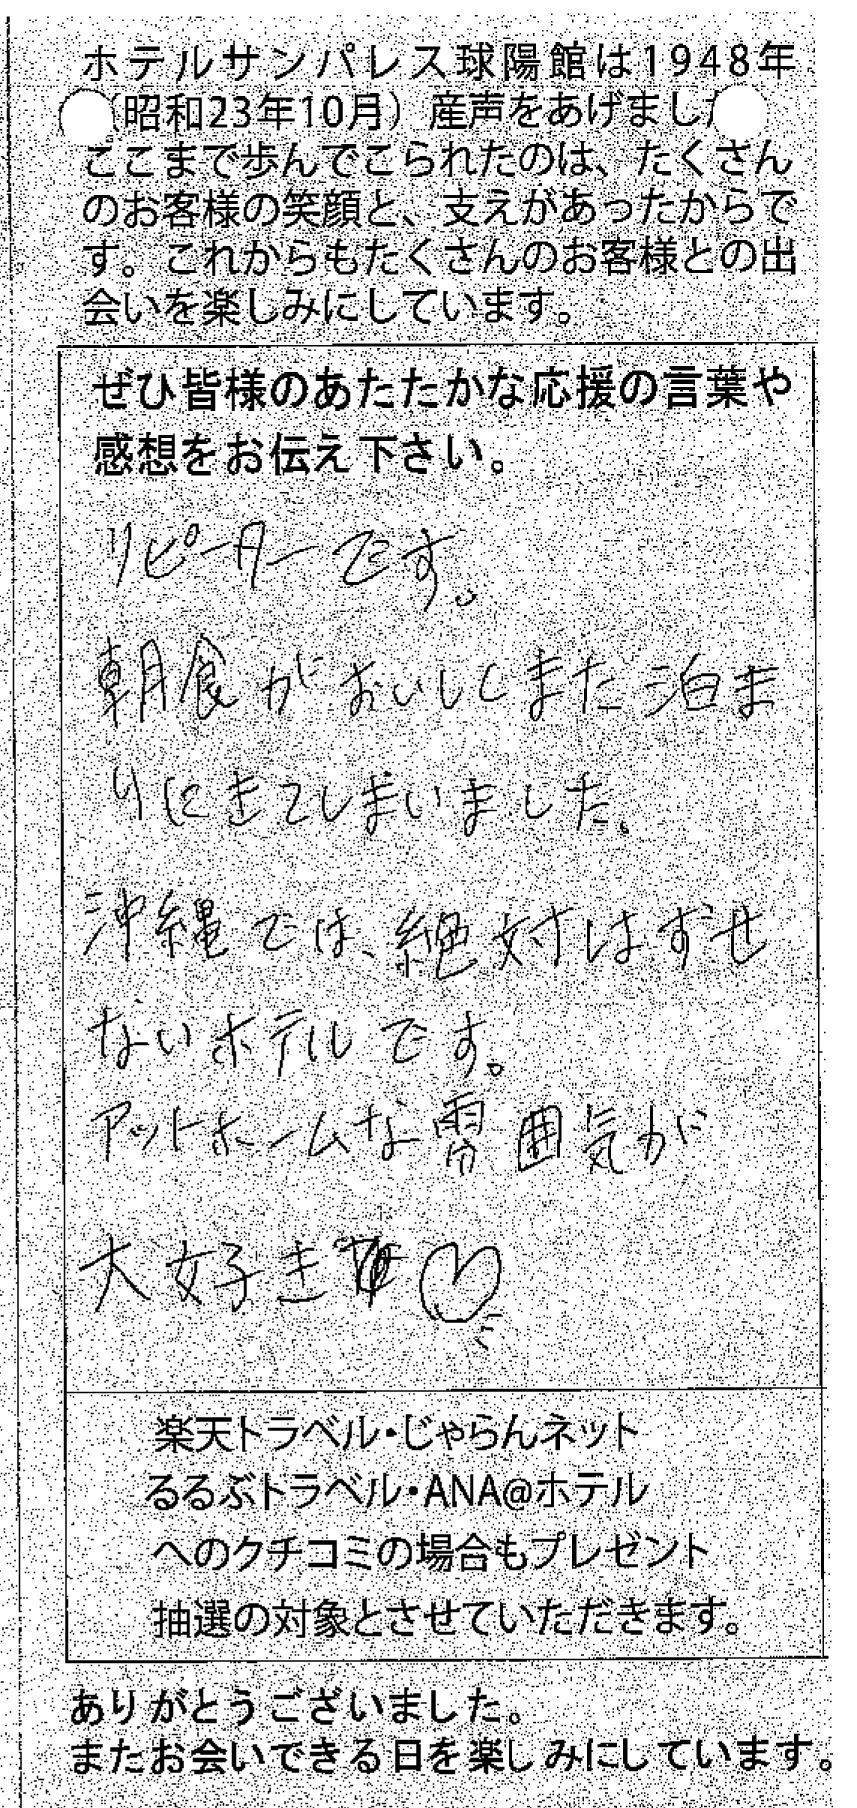 ホテルサンパレス球陽館は1948年
（昭和23年10月）産声をあげました
ここまで歩んでこられたのは、たくさん
のお客様の笑顔と、支えがあったからで
す。これからもたくさんのお客様との出
会いを楽しみにしています。
ぜひ皆様のあたたかな応援の言葉や
感想をお伝え下さい。
リピーターです。
朝食がおいしくまた泊ま
りにきてしまいました。
沖縄では、絶対はずせ
ないホテルです。
アットホームな雰囲気が
大好き
楽天トラベル・じゃらんネット
るるぶトラベル・ANA@ホテル
へのクチコミの場合もプレゼント
抽選の対象とさせていただきます。
ありがとうございました。
またお会いできる日を楽しみにしています。